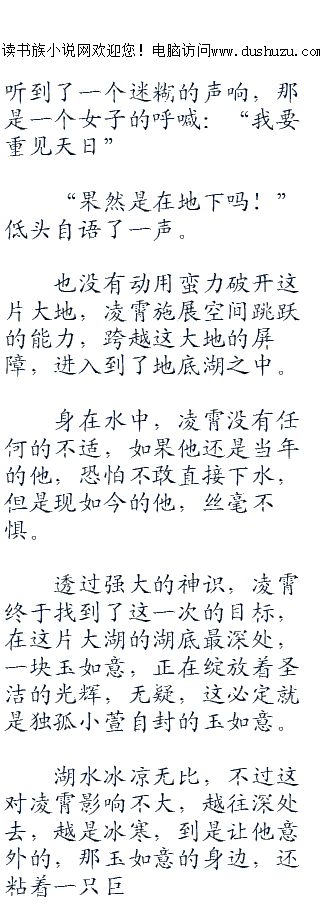 读书族小说网欢迎您！电脑访问www.dushuzu.com
听到了一个迷糊的声响，那
是一个女子的呼喊：“我要
重见天日”
“果然是在地下吗！”
低头自语了一声。
也没有动用蛮力破开这
片大地，凌霄施展空间跳跃
的能力，跨越这大地的屏
障，进入到了地底湖之中。
身在水中，凌霄没有任
何的不适，如果他还是当年
的他，恐怕不敢直接下水，
但是现如今的他，丝毫不
惧。
透过强大的神识，凌霄
终于找到了这一次的目标，
在这片大湖的湖底最深处，
一块玉如意，正在绽放着圣
洁的光辉，无疑，这必定就
是独孤小萱自封的玉如意。
湖水冰凉无比，不过这
对凌霄影响不大，越往深处
去，越是冰寒，到是让他意
外的，那玉如意的身边，还
粘着一只巨